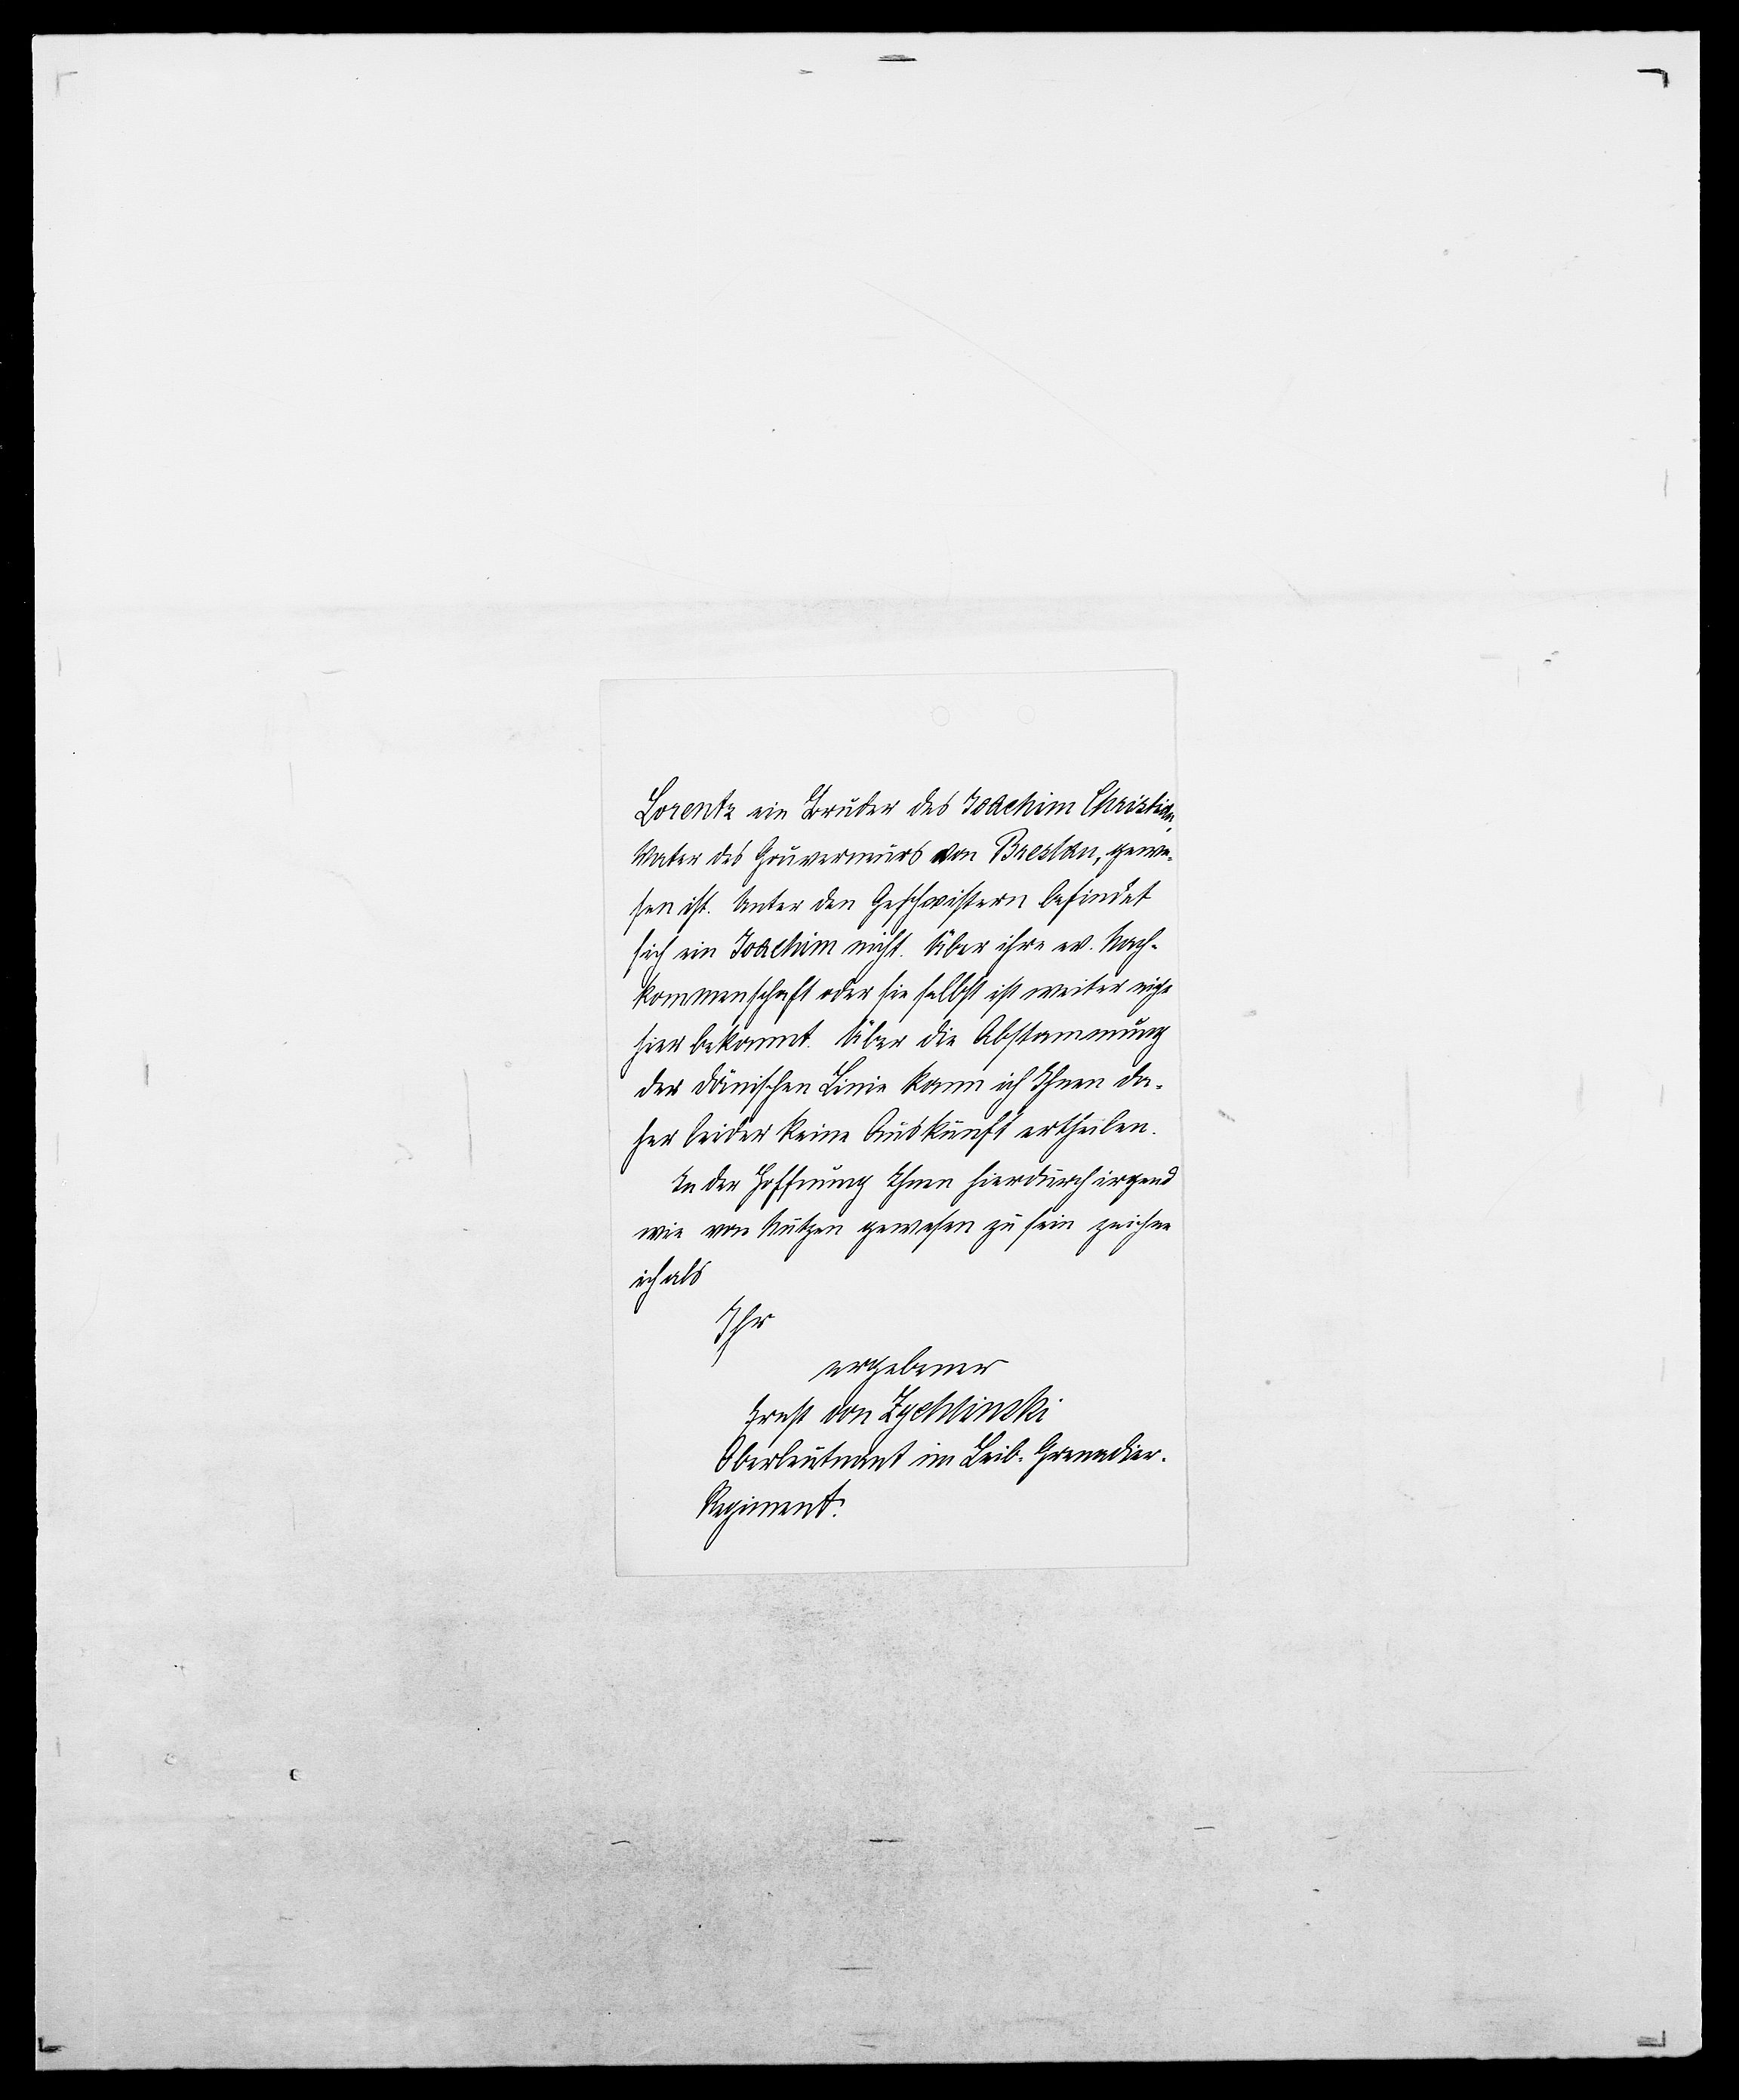 Lorentz ein Bruder des Joachim Christian,
Vater des Gouverneurs von Breslau, gewe-
sen ist. Unter den Geschwistern befindet
sich ein Joachim nicht. Über ihre ev. Nach-
kommenschaft oder sie selbst ist weiter nichts
hier bekannt. Über die Abstammung
der dänischen Linie kann ich Ihnen da-
her leider keine Auskunft ertheilen.
In der Hoffnung Ihnen hierdurch irgend
wie von Nutzen gewesen zu sein zeichne
ich als
Ihr
ergebener
Ernst von Zychlinski
Oberleutnant im Leib-Grenadier-
Regiment.